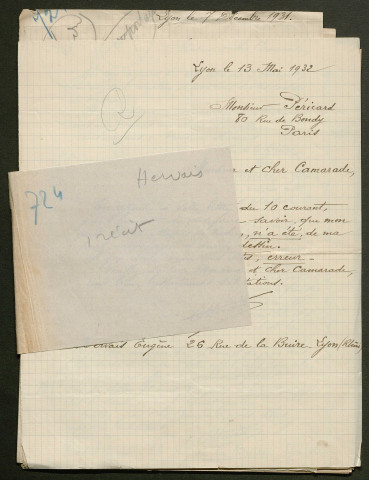 Lyon le 7 Décembre 1931.
Lyon le 13 Mai 1932
Monsieur Péricard
80 Rue de Bondy
Paris
et cher Camarade,
du 10 courant,
savoir, que mon
n'a été, de ma
erreur
et cher Camarade,
Eugène 26 Rue de la Buire Lyon (Rhône
724
Hervais
1 récit